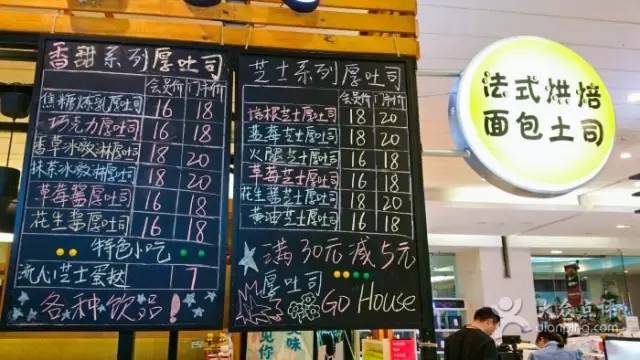 香甜系列厚吐司
会员价 门市价
焦糖炼乳厚吐司 16 18
巧克力厚吐司 16 18
香草冰激淋厚吐司 18 20
抹茶冰激淋厚吐司 18 20
草莓酱厚吐司 16 18
花生酱厚吐司 16 18
特色小吃
流心芝士蛋挞 7
各种饮品!
芝士系列厚吐司
会员价 门市价
培根芝士厚吐司 18 20
蓝莓芝士厚吐司 18 20
火腿芝士厚吐司 16 18
草莓芝士厚吐司 16 18
花生酱芝士厚吐司 18 20
黄油芝士厚吐司 16 18
满30元减5元
厚吐司
GO House
法式烘焙
面包土司
大众点评
dianping.com